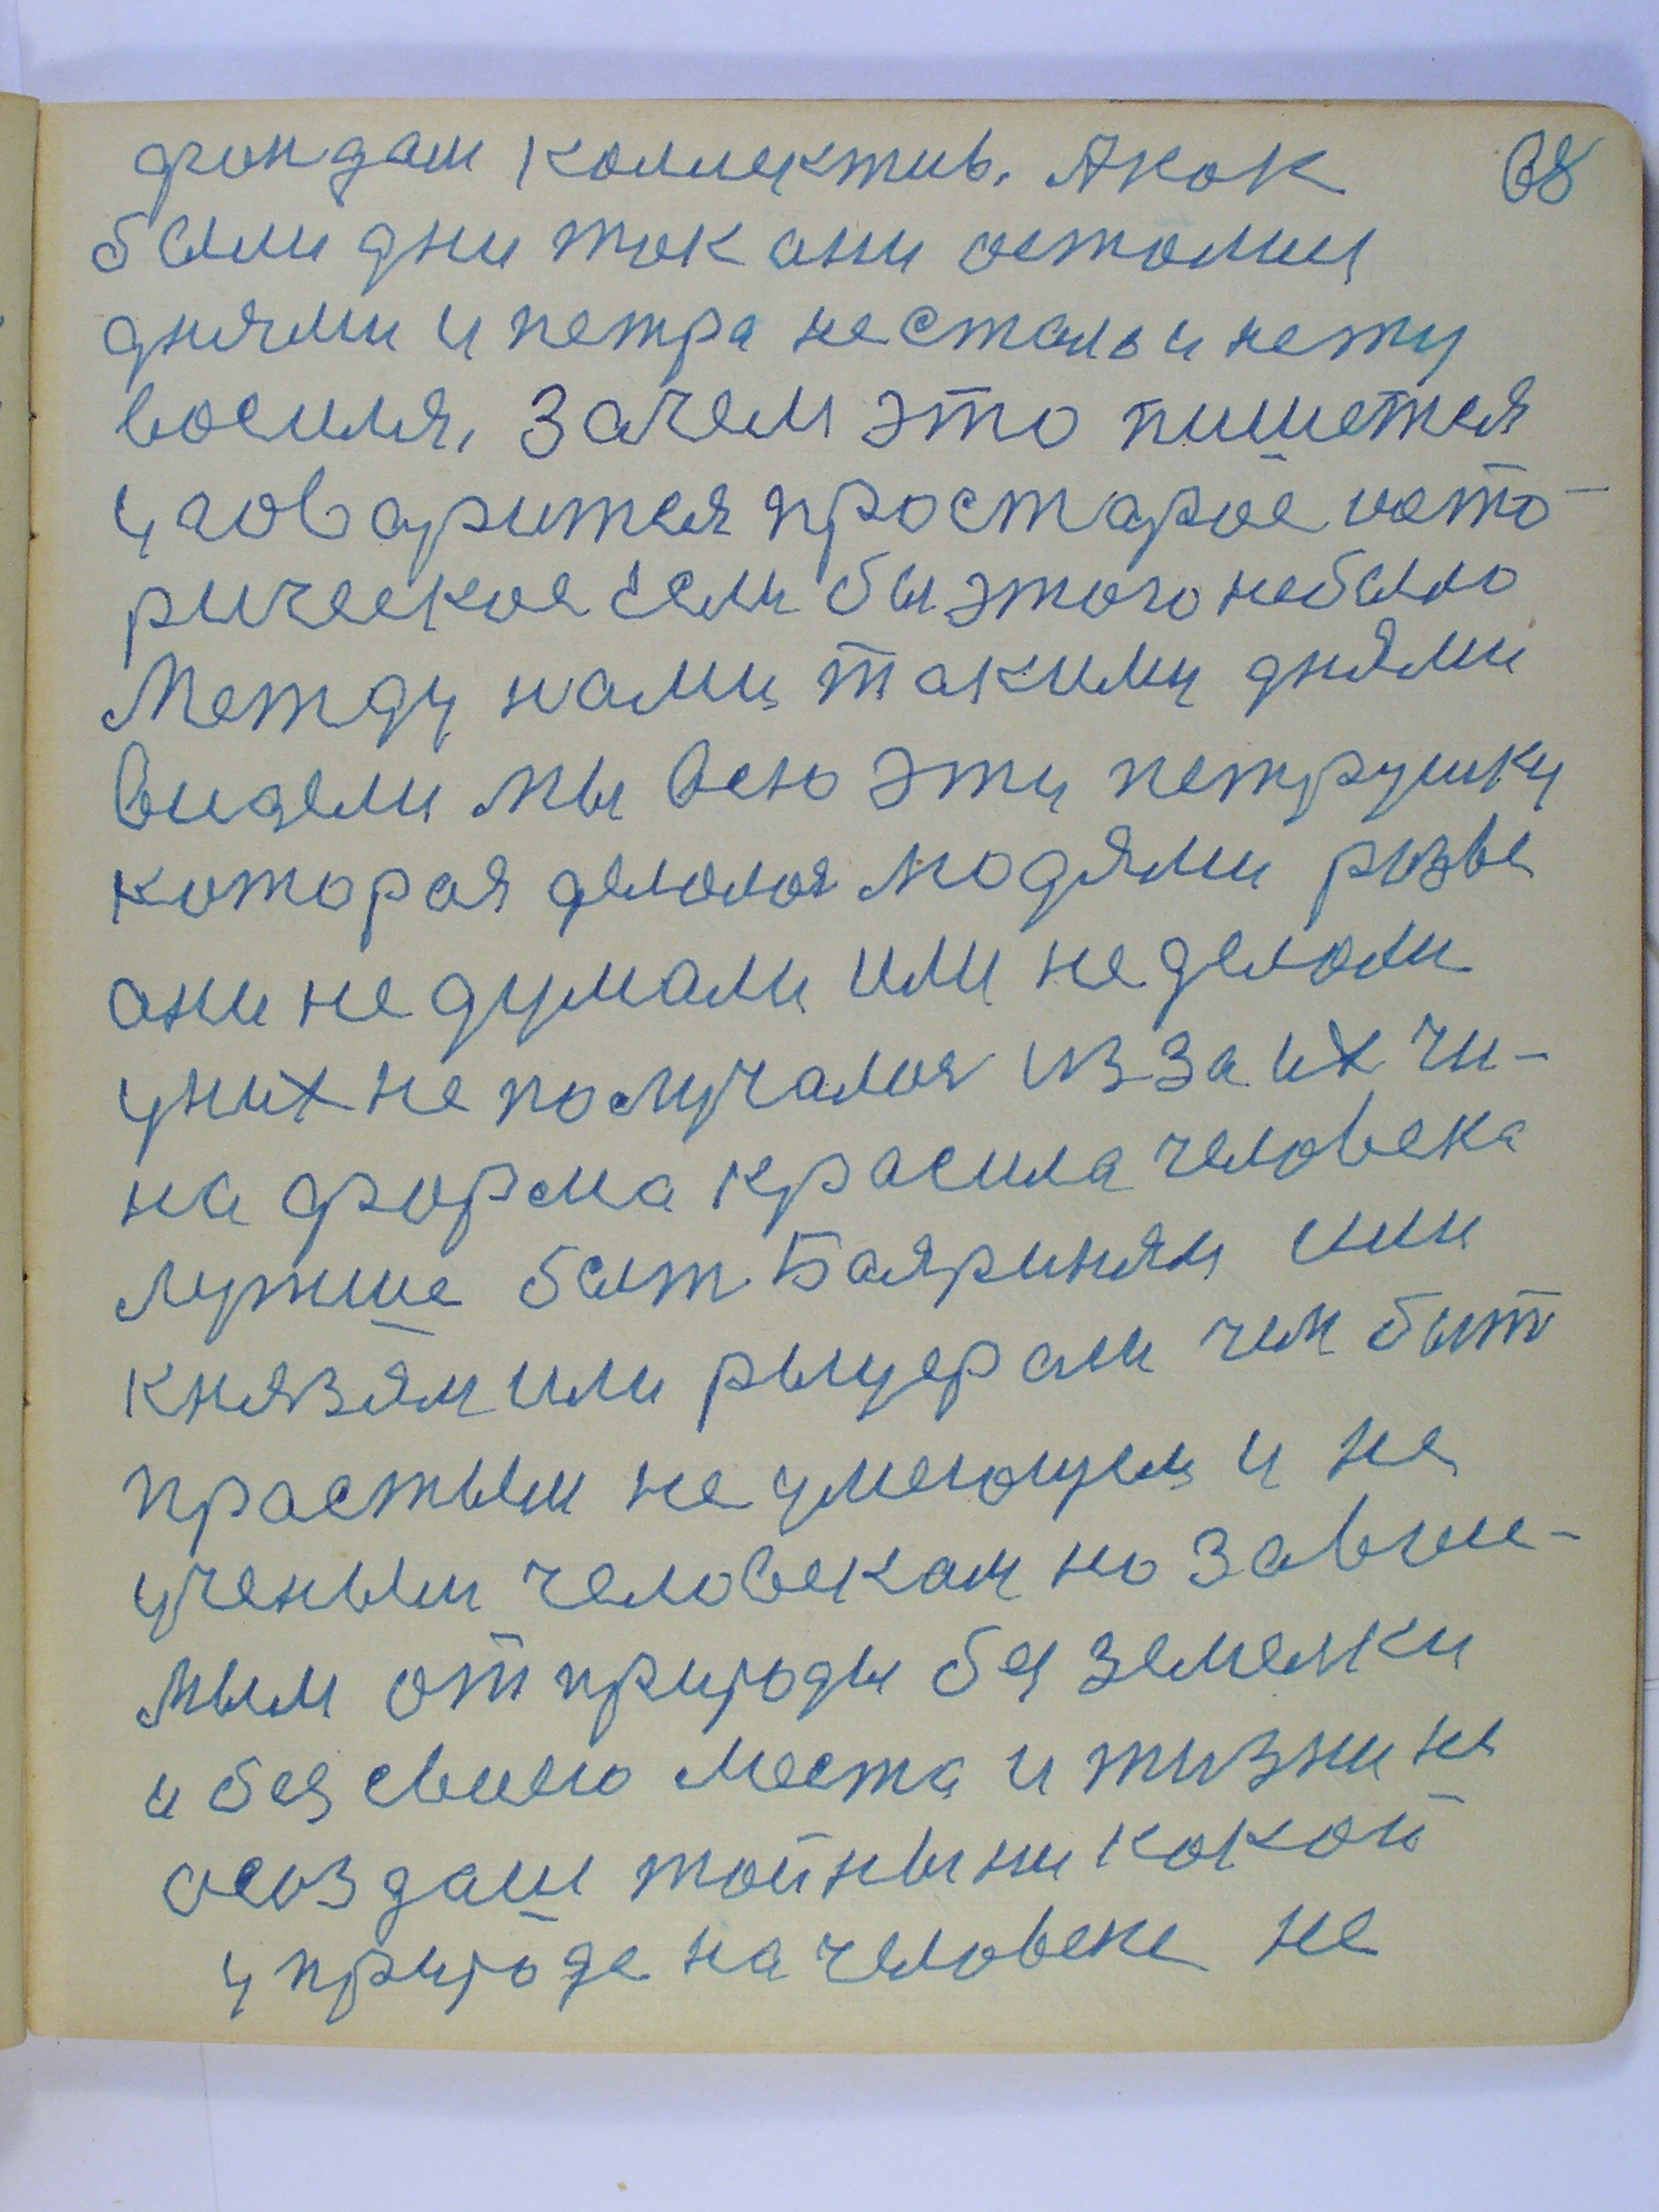 68
фондам коллектив. Акак
были дни так ани астались
днями и петра не стало и нету
восиля. Зачем это пишется
и говарится простарое исто-
рическое Если бы этого небыло
Между нами такими днями
Видели мы всю эту петрушку
которая делалоя людями розве
ани не думали или неделали
уних не получалоя из за их чи-
на форма красила человека
лутше быт Бояриням или
князям или рыцерам чем быт
прастым не умеющем и не
ученым человекам но завие-
мым от природы без земельки
и без своего места и жизни не
асоздаш тайны никокой
уприроде на человеке не